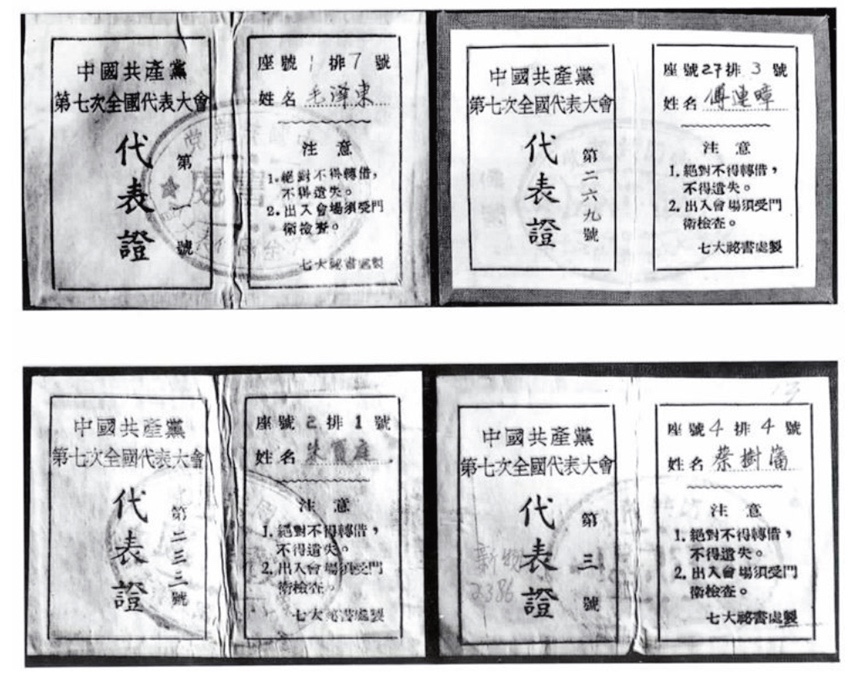 中國共產黨
第七次全國代表大會
代表證
第一號
座號1排7號
姓名 毛澤東
注意
1.絕對不得轉借，
不得遺失。
2.出入會場須受門
衛檢查。
七大祕書處製
中國共產黨
第七次全國代表大會
代表證
第二六九號
座號27排3號
姓名 傅連暲
注意
1.絕對不得轉借，
不得遺失。
2.出入會場須受門
衛檢查。
七大祕書處製
中國共產黨
第七次全國代表大會
代表證
第二三三號
座號2排1號
姓名 朱寶庭
注意
1.絕對不得轉借，
不得遺失。
2.出入會場須受門
衛檢查。
七大祕書處製
中國共產黨
第七次全國代表大會
代表證
第三號
2386
座號4排4號
姓名 蔡樹藩
注意
1.絕對不得轉借，
不得遺失。
2.出入會場須受門
衛檢查。
七大祕書處製